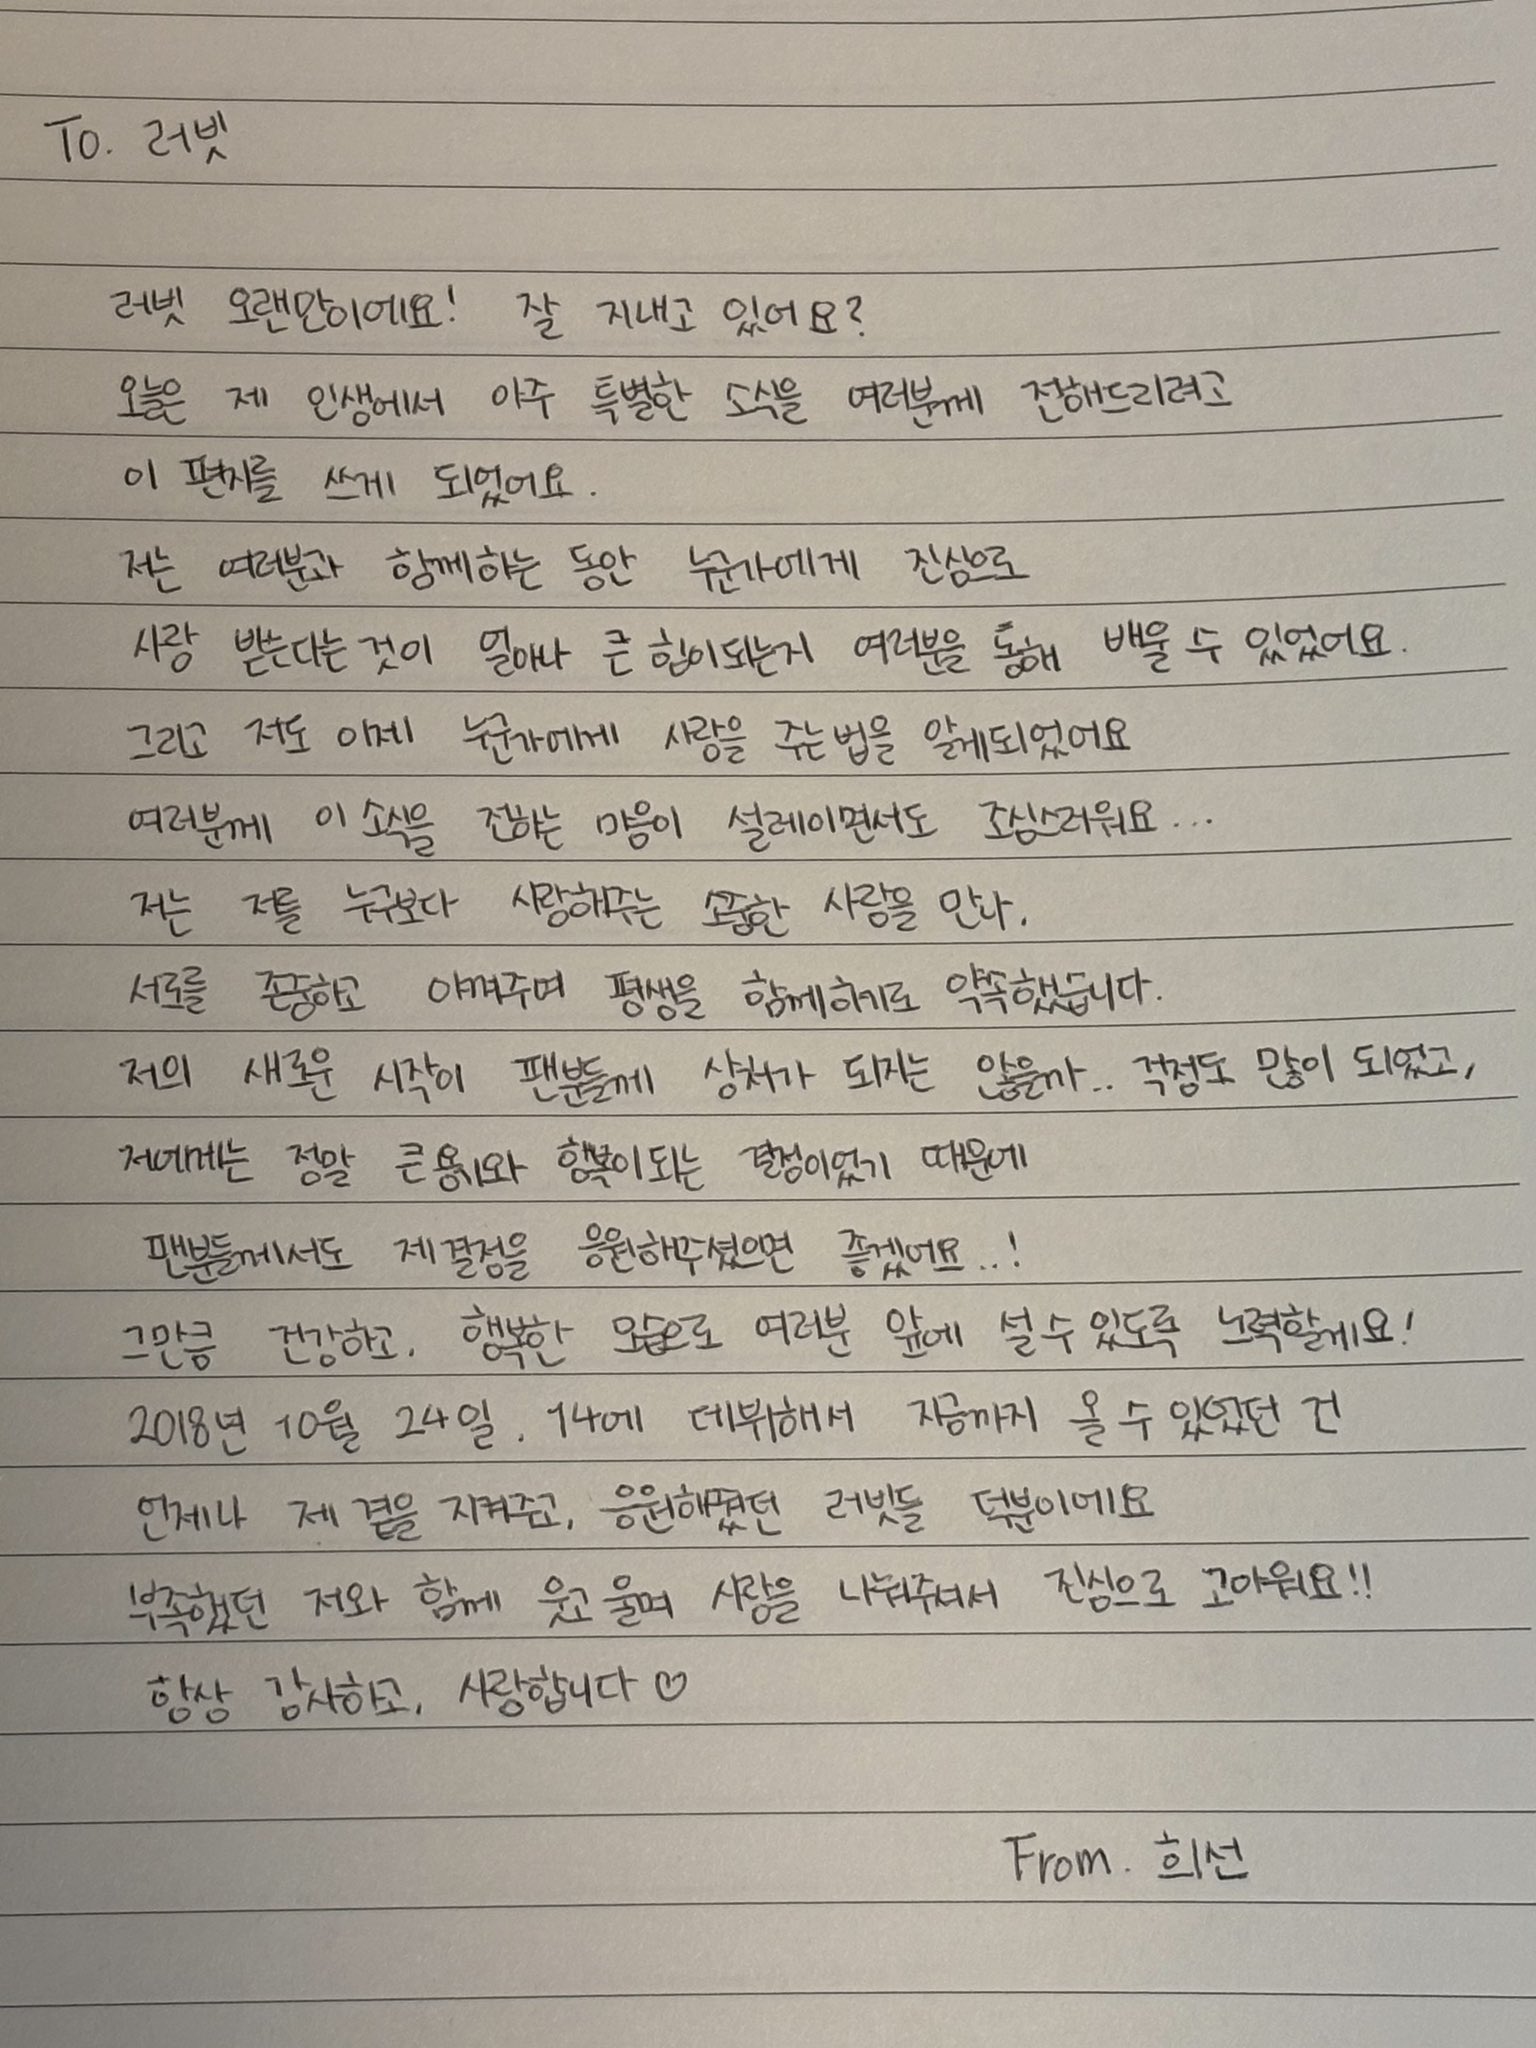 To. 러빗
러빗 오랜만이에요! 잘 지내고 있어요?
오늘은 제 인생에서 아주 특별한 소식을 여러분께 전해드리려고
이 편지를 쓰게 되었어요.
저는 여러분과 함께하는 동안 누군가에게 진심으로
사랑 받는다는 것이 얼마나 큰 힘이되는지 여러분을 통해 배울 수 있었어요.
그리고 저도 이제 누군가에게 사랑을 주는 법을 알게되었어요
여러분께 이 소식을 전하는 마음이 설레이면서도 조심스러워요...
저는 저를 누구보다 사랑해주는 소중한 사람을 만나,
서로를 존중하고 아껴주며 평생을 함께하기로 약속했습니다.
저의 새로운 시작이 팬분들께 상처가 되지는 않을까.. 걱정도 많이 되었고,
저에게는 정말 큰 용기와 행복이되는 결정이었기 때문에
팬분들께서도 제 결정을 응원해주셨으면 좋겠어요..!
그만큼 건강하고, 행복한 모습으로 여러분 앞에 설 수 있도록 노력할게요!
2018년 10월 24일. 14에 데뷔해서 지금까지 올 수 있었던 건
언제나 제 곁을 지켜주고, 응원해줬던 러빗들 덕분이에요
부족했던 저와 함께 웃고 울며 사랑을 나눠주셔서 진심으로 고마워요!!
항상 감사하고, 사랑합니다♡
From. 희선